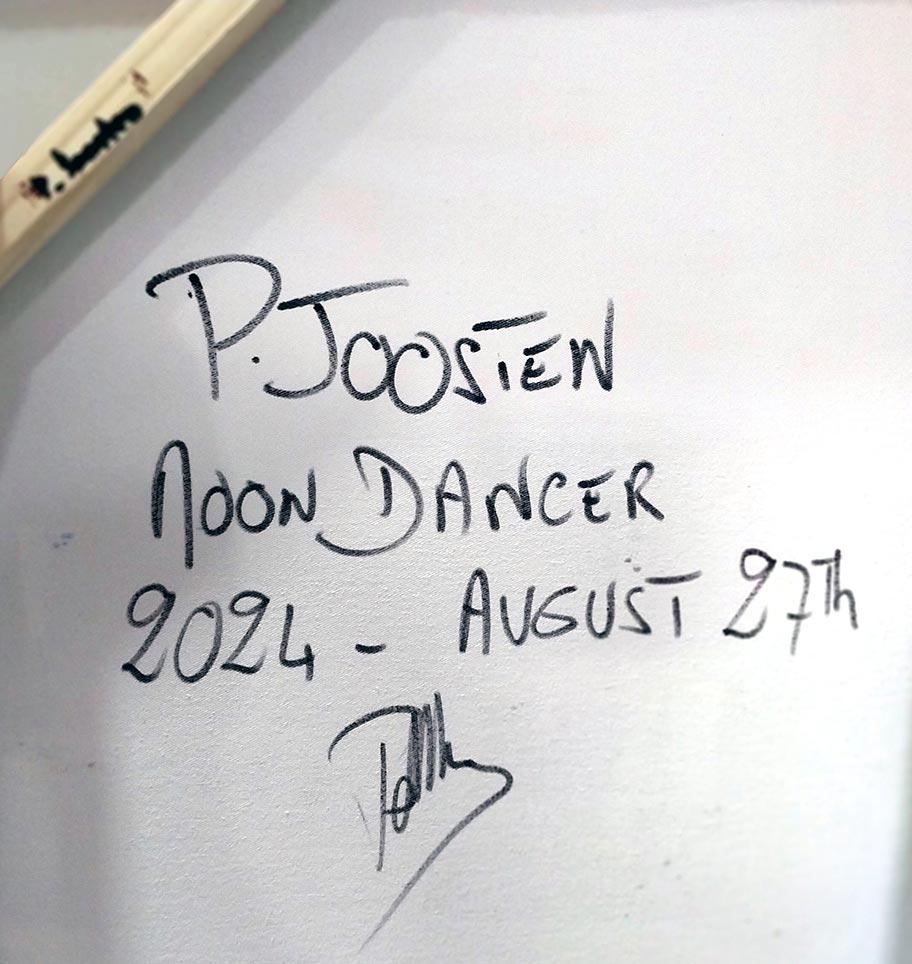 P. JOOSTEN
MOON DANCER
2024 - AUGUST 27Th